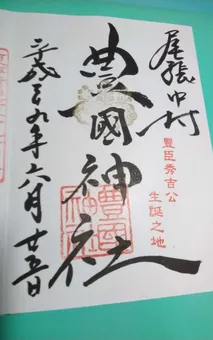 尾張中村
豊臣秀吉公
生誕之地
豊國神社
平成廿九年六月廿五日